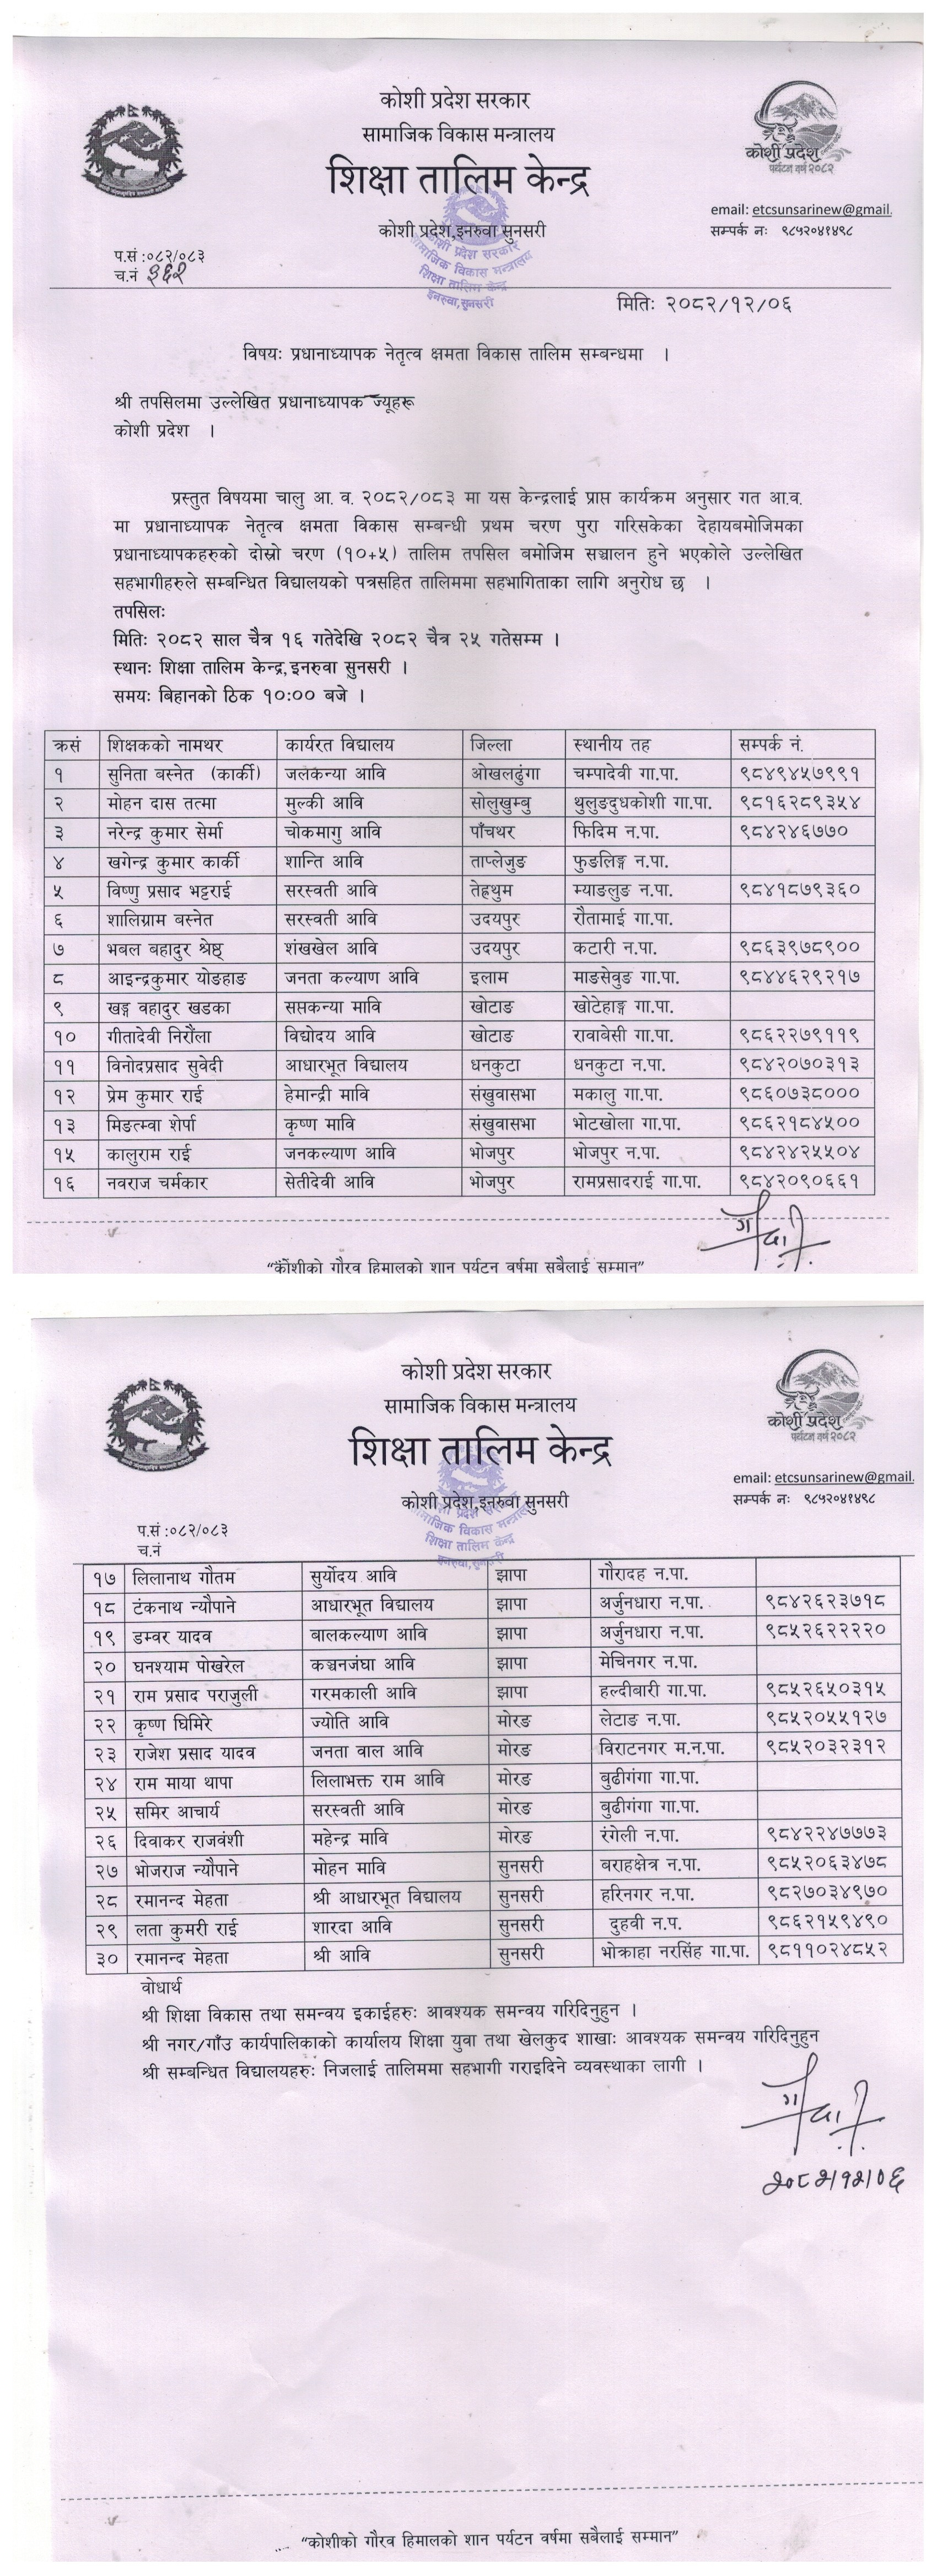 कोशी प्रदेश सरकार
सामाजिक विकास मन्त्रालय
शिक्षा तालिम केन्द्र
कोशी प्रदेश,इनरुवा सुनसरी
कोशी प्रदेश
पर्यटन वर्ष २०८२
email: etcsunsarinew@gmail.
सम्पर्क नः ९८५२०४१४९८
कोशी प्रदेश सरकार
सामाजिक विकास मन्त्रालय
शिक्षा तालिम केन्द्र
इनरुवा,सुनसरी
प.सं :०८२/०८३
च.नं ३६२
मितिः २०८२/१२/०६
विषयः प्रधानाध्यापक नेतृत्व क्षमता विकास तालिम सम्बन्धमा ।
श्री तपसिलमा उल्लेखित प्रधानाध्यापक ज्यूहरू
कोशी प्रदेश ।
प्रस्तुत विषयमा चालु आ. व. २०८२/०८३ मा यस केन्द्रलाई प्राप्त कार्यक्रम अनुसार गत आ.व.
मा प्रधानाध्यापक नेतृत्व क्षमता विकास सम्बन्धी प्रथम चरण पुरा गरिसकेका देहायबमोजिमका
प्रधानाध्यापकहरुको दोस्रो चरण (१०+५) तालिम तपसिल बमोजिम सञ्चालन हुने भएकोले उल्लेखित
सहभागीहरुले सम्बन्धित विद्यालयको पत्रसहित तालिममा सहभागिताका लागि अनुरोध छ ।
तपसिलः
मितिः २०८२ साल चैत्र १६ गतेदेखि २०८२ चैत्र २५ गतेसम्म ।
स्थानः शिक्षा तालिम केन्द्र,इनरुवा सुनसरी ।
समयः बिहानको ठिक १०:०० बजे ।
क्रसं शिक्षकको नामथर कार्यरत विद्यालय जिल्ला स्थानीय तह सम्पर्क नं.
१ सुनिता बस्नेत (कार्की) जलकन्या आवि ओखलढुंगा चम्पादेवी गा.पा. ९८४९४५७९९१
२ मोहन दास तत्मा मुल्की आवि सोलुखुम्बु थुलुङदुधकोशी गा.पा. ९८१६२८९३५४
३ नरेन्द्र कुमार सेर्मा चोकमागु आवि पाँचथर फिदिम न.पा. ९८४२४६७७०
४ खगेन्द्र कुमार कार्की शान्ति आवि ताप्लेजुङ फुङलिङ्ग न.पा.
५ विष्णु प्रसाद भट्टराई सरस्वती आवि तेह्रथुम म्याङलुङ न.पा. ९८४१८७९३६०
६ शालिग्राम बस्नेत सरस्वती आवि उदयपुर रौतामाई गा.पा.
७ भबल बहादुर श्रेष्ठ शंखखेल आवि उदयपुर कटारी न.पा. ९८६३९७८९००
८ आइन्द्रकुमार योङहाङ जनता कल्याण आवि इलाम माङसेवुङ गा.पा. ९८४४६२९२१७
९ खड्ग वहादुर खडका सप्तकन्या मावि खोटाङ खोटेहाङ्ग गा.पा.
१० गीतादेवी निरौला विद्योदय आवि खोटाङ रावाबेसी गा.पा. ९८६२२७९११९
११ विनोदप्रसाद सुवेदी आधारभूत विद्यालय धनकुटा धनकुटा न.पा. ९८४२०७०३१३
१२ प्रेम कुमार राई हेमान्द्री मावि संखुवासभा मकालु गा.पा. ९८६०७३८०००
१३ मिङत्म्वा शेर्पा कृष्ण मावि संखुवासभा भोटखोला गा.पा. ९८६२१८४५००
१५ कालुराम राई जनकल्याण आवि भोजपुर भोजपुर न.पा. ९८४२४२५५०४
१६ नवराज चर्मकार सेतीदेवी आवि भोजपुर रामप्रसादराई गा.पा. ९८४२०९०६६१
“कोशीको गौरव हिमालको शान पर्यटन वर्षमा सबैलाई सम्मान”
कोशी प्रदेश सरकार
सामाजिक विकास मन्त्रालय
शिक्षा तालिम केन्द्र
कोशी प्रदेश,इनरुवा सुनसरी
कोशी प्रदेश
पर्यटन वर्ष २०८२
email: etcsunsarinew@gmail.
सम्पर्क नः ९८५२०४१४९८
सामाजिक विकास मन्त्रालय
शिक्षा तालिम केन्द्र
इनरुवा,सुनसरी
प.सं :०८२/०८३
च.नं
१७ लिलानाथ गौतम सुर्योदय आवि झापा गौरादह न.पा.
१८ टंकनाथ न्यौपाने आधारभूत विद्यालय झापा अर्जुनधारा न.पा. ९८४२६२३७१८
१९ डम्वर यादव बालकल्याण आवि झापा अर्जुनधारा न.पा. ९८५२६२२२२०
२० घनश्याम पोखरेल कञ्चनजंघा आवि झापा मेचिनगर न.पा.
२१ राम प्रसाद पराजुली गरमकाली आवि झापा हल्दीबारी गा.पा. ९८५२६५०३१५
२२ कृष्ण घिमिरे ज्योति आवि मोरङ लेटाङ न.पा. ९८५२०५५१२७
२३ राजेश प्रसाद यादव जनता वाल आवि मोरङ विराटनगर म.न.पा. ९८५२०३२३१२
२४ राम माया थापा लिलाभक्त राम आवि मोरङ बुढीगंगा गा.पा.
२५ समिर आचार्य सरस्वती आवि मोरङ बुढीगंगा गा.पा.
२६ दिवाकर राजवंशी महेन्द्र मावि मोरङ रंगेली न.पा. ९८४२२४७७७३
२७ भोजराज न्यौपाने मोहन मावि सुनसरी बराहक्षेत्र न.पा. ९८५२०६३४७८
२८ रमानन्द मेहता श्री आधारभूत विद्यालय सुनसरी हरिनगर न.पा. ९८२७०३४९७०
२९ लता कुमरी राई शारदा आवि सुनसरी दुहवी न.प. ९८६२१५९४९०
३० रमानन्द मेहता श्री आवि सुनसरी भोक्राहा नरसिंह गा.पा. ९८११०२४८५२
वोधार्थ
श्री शिक्षा विकास तथा समन्वय इकाईहरुः आवश्यक समन्वय गरिदिनुहुन ।
श्री नगर/गाँउ कार्यपालिकाको कार्यालय शिक्षा युवा तथा खेलकुद शाखाः आवश्यक समन्वय गरिदिनुहुन
श्री सम्बन्धित विद्यालयहरुः निजलाई तालिममा सहभागी गराइदिने व्यवस्थाका लागी ।
२०८२।१२।०६
“कोशीको गौरव हिमालको शान पर्यटन वर्षमा सबैलाई सम्मान”